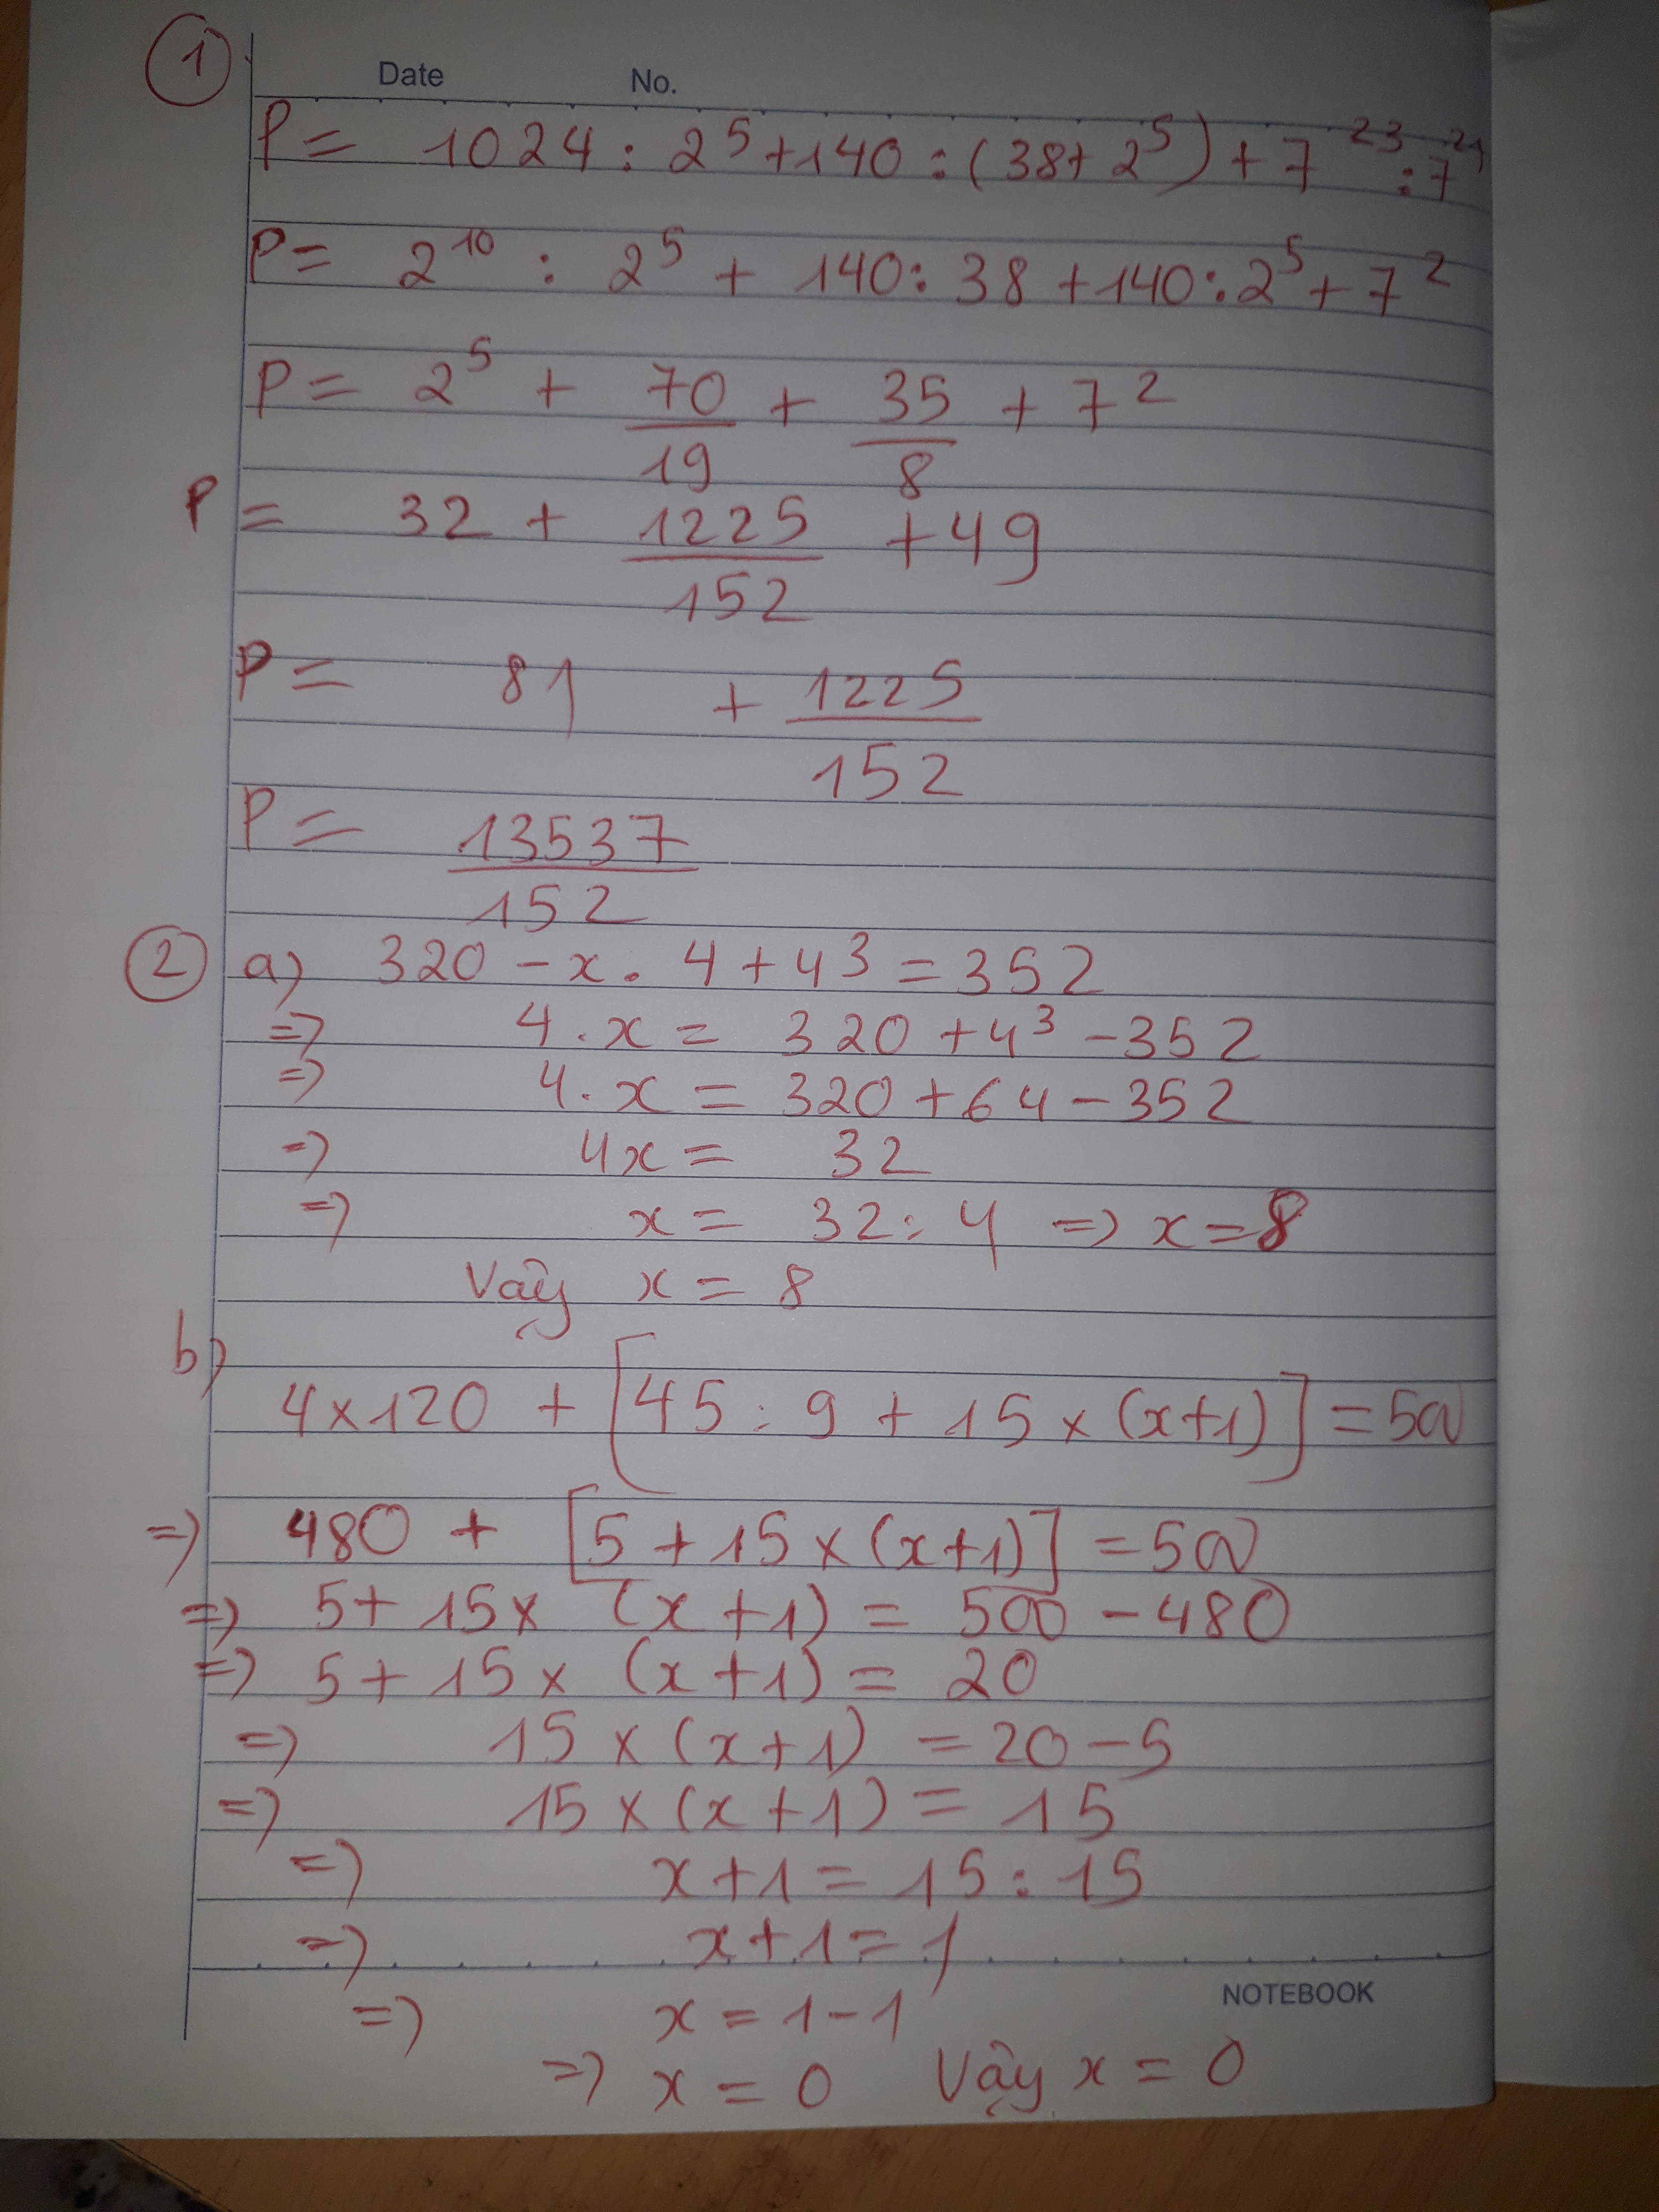 ①
Date No.
P = 1024 : 2⁵ + 140 : (38 + 2⁵) + 7²³ : 7²¹
P = 2¹⁰ : 2⁵ + 140 : 38 + 140 : 2⁵ + 7²
P = 2⁵ + 70/19 + 35/8 + 7²
P = 32 + 1225/152 + 49
P = 81 + 1225/152
P = 13537/152
② a) 320 - x . 4 + 4³ = 352
=> 4 . x = 320 + 4³ - 352
=> 4 . x = 320 + 64 - 352
=> 4x = 32
=> x = 32 : 4 => x = 8
Vậy x = 8
b)
4 x 120 + [45 : 9 + 15 x (x+1)] = 500
=> 480 + [5 + 15 x (x+1)] = 500
=> 5 + 15 x (x+1) = 500 - 480
=> 5 + 15 x (x+1) = 20
=> 15 x (x+1) = 20 - 5
=> 15 x (x+1) = 15
=> x + 1 = 15 : 15
=> x + 1 = 1
NOTEBOOK
=> x = 1 - 1
=> x = 0 Vậy x = 0